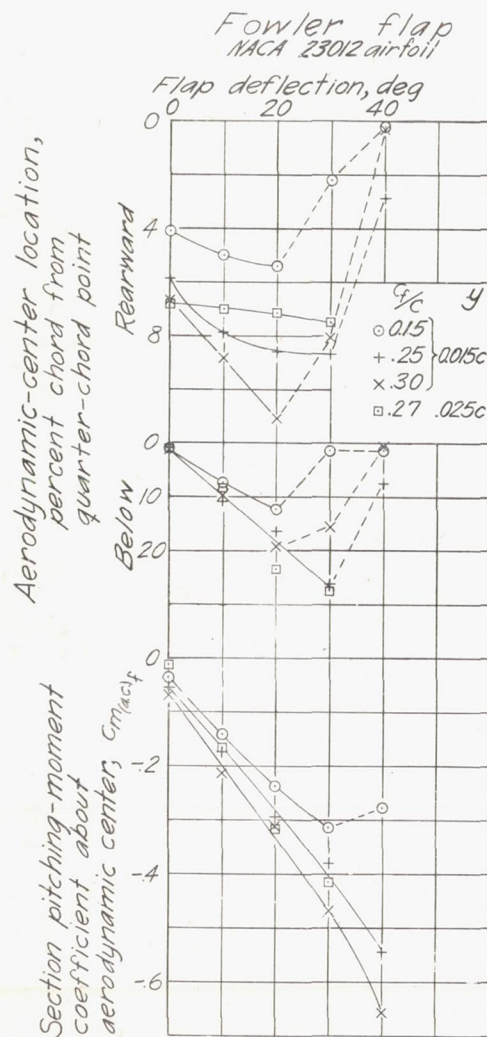 Fowler flap
NACA 23012 airfoil
Flap deflection, deg
0 20 40
Aerodynamic-center location,
percent chord from
quarter-chord point
Rearward
0
4
8
cf/c y
0.15
.25
.30
0.015c
.27 .025c
Below
0
10
20
Section pitching-moment
coefficient about
aerodynamic center, cm(ac)f
0
-.2
-.4
-.6